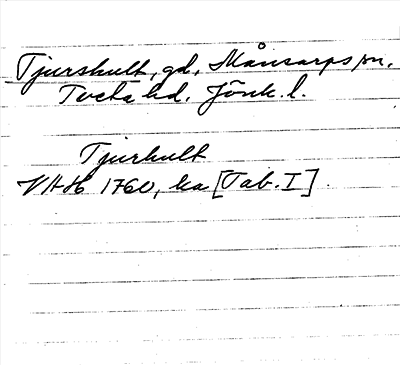 Tjurshult, gd, Månsarps sn,
Tveta hd. Jönk. l.
Tjurhult
VHH 1760, ka [Tab. I]